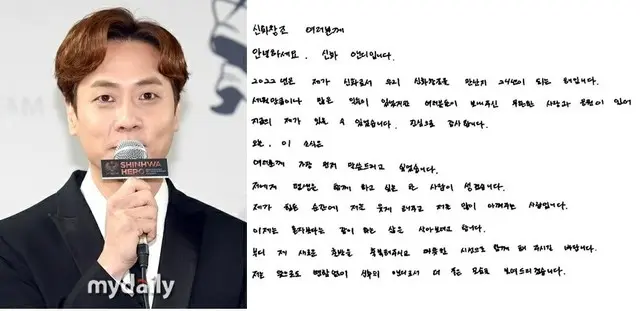 SHINHWA
HERO
mydaily
신화창조 여러분께
안녕하세요. 신화 앤디입니다.
2022년은 제가 신화로서 우리 신화창조를 만난지 24년이 되는 해입니다.
세월만큼이나 많은 일들이 있었지만 여러분들이 보내주신 무한한 사랑과 응원이 있어
지금의 제가 있을 수 있었습니다. 진심으로 감사합니다.
오늘, 이 소식은
여러분께 가장 먼저 말씀드리고 싶었습니다.
저에게 평생을 함께 하고 싶은 한 사람이 생겼습니다.
제가 힘든 순간에 저를 웃게 해주고 저를 많이 아껴주는 사람입니다.
이제는 혼자보다는 같이 하는 삶을 살아보려고 합니다.
부디 제 새로운 출발을 축복해주시고 따뜻한 시선으로 함께 해 주시길 바랍니다.
저는 앞으로도 변함없이 신화의 앤디로서 더 좋은 모습으로 보여드리겠습니다.